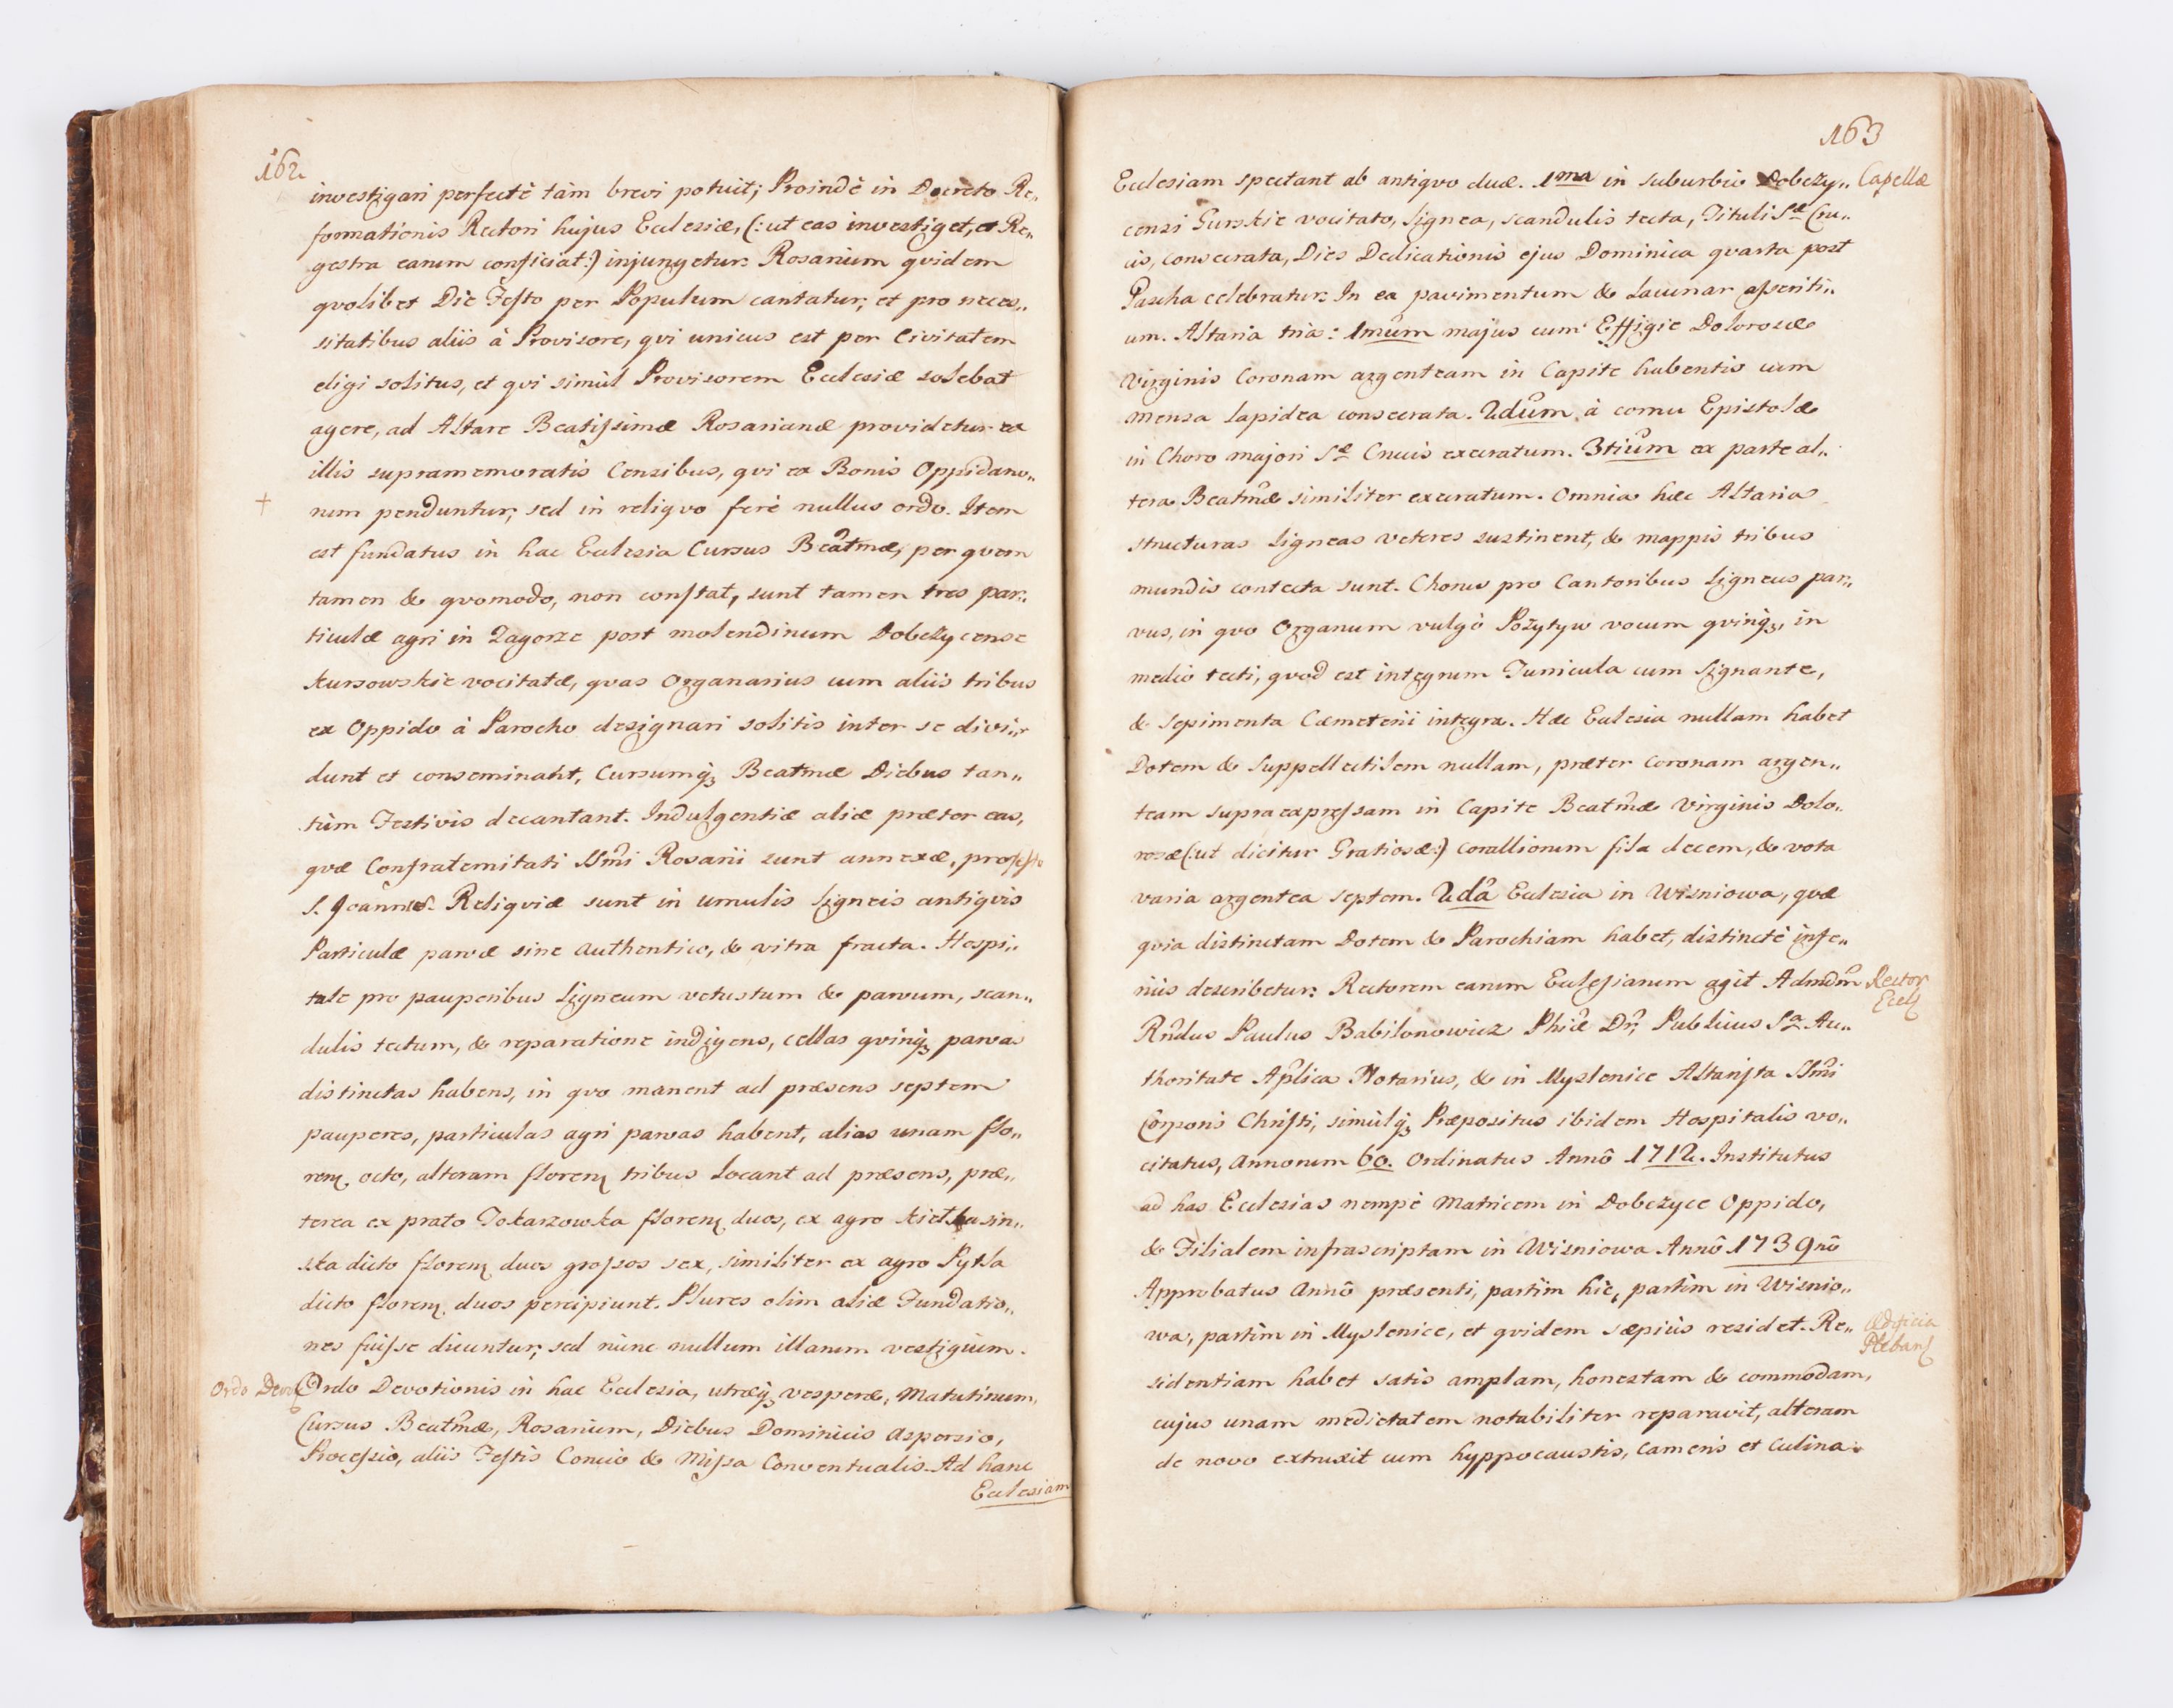 162
investigari perfectè tàm brevi potuit; Proindè in Decreto Re„
formationis Rectori hujus Ecclesiæ, (: ut eas investiget, et Re„
gestra earum conficiat :) injungetur. Rosarium qvidem
qvolibet Die Festo per Populum cantatur; et pro neces„
sitatibus aliis à Provisore, qvi unicus est per Civitatem
eligi solitus, et qvi simùl Provisorem Ecclesiæ solebat
agere, ad Altare Beatissimæ Rosarianæ providetur ex
illis supramemoratis Censibus, qvi ex Bonis Oppidano„
rum penduntur; sed in reliqvo ferè nullus ordo. Item
est fundatus in hac Ecclesia Cursus Beatmæ, per qvem
tamen & qvomodo, non constat, sunt tamen tres par„
ticulæ agri in Zagorze post molendinum Dobczycense
Kursowskie vocitatæ, qvas Organarius cum aliis tribus
ex Oppido à Parocho designari solitis inter se divi„
dunt et conseminant, Cursumq; Beatmæ Diebus tan„
tùm Festivis decantant. Indulgentiæ aliæ præter eas,
qvæ Confraternitati SSmi Rosarii sunt annexæ, pro festo
S. Joannis. Reliqviæ sunt in cumulis ligneis antiqvis
Particulæ parvæ sine Authentico, & vitra fracta. Hospi„
tale pro pauperibus ligneum vetustum & parvum, scan„
dulis tectum, & reparatione indigens, cellas qvinq; parvas
distinctas habens, in qvo manent ad præsens septem
pauperes, particulas agri parvas habent, alias unam flo„
ren. octo, alteram floren. tribus locant ad præsens, præ„
terea ex prato Tokarzowka floren. duos, ex agro
ska dicto floren. duos grossos sex, similiter ex agro Pytla
dicto floren. duos percipiunt. Plures olim aliæ Fundatio„
nes fuisse dicuntur; sed nùnc nullum illarum vestigium.
Ordo Devo
Ordo Devotionis in hac Ecclesia, utræq; vesperæ, Matutinum,
Cursus Beatmæ, Rosarium, Diebus Dominicis aspersio,
Processio, aliis Festis Concio & Missa Conventualis. Ad hanc
Ecclesiam
163
Ecclesiam spectant ab antiqvo duæ. 1ma in suburbio Dobczy„
Capellæ
censi Gurskie vocitato, lignea, scandulis tecta, Tituli Sæ Cru„
cis, consecrata, Dies Dedicationis ejus Dominica qvarta post
Pascha celebratur. In ea pavimentum & Lacunar asseriti„
um. Altaria tria: 1mum majus cum Effigie Dolorosæ
Virginis Coronam argenteam in Capite habentis cum
mensa lapidea consecrata. 2dum à cornu Epistolæ
in Choro majori Sæ Crucis execratum. 3tium ex parte al„
tera Beatmæ similiter execratum. Omnia hæc Altaria
structuras ligneas veteres sustinent, & mappis tribus
mundis contecta sunt. Chorus pro Cantoribus ligneus par„
vus, in qvo Organum vulgò Pożytyw vocum qvinq;, in
medio tecti, qvod est integrum Turricula cum Signante,
& Sepimenta Cæmeterii integra. Hæc Ecclesia nullam habet
Dotem & Suppellectilem nullam, præter Coronam argen„
team supra expressam in Capite Beatmæ Virginis Dolo„
rosæ (: ut dicitur Gratiosæ :) Corallionum fila decem, & vota
varia argentea septem. 2da Ecclesia in Wisniowa, qvæ
qvia distinctam Dotem & Parochiam habet, distinctè infe„
riùs describetur. Rectorem earum Ecclesiarum agit Admdm
Rector
Eccl
Rndus Paulus Babilonowicz Phiæ Dr; Publicus Sa Au„
thoritate Aplica Notarius, & in Myslenice Altarista SSmi
Corporis Christi, simùlq; Præpositus ibidem Hospitalis vo„
citatus, Annorum 60. Ordinatus Annô 1712. Institutus
ad has Ecclesias nempè Matricem in Dobczyce Oppido,
& Filialem infrascriptam in Wisniowa Annô 1739nô
Approbatus Annô præsenti, partìm hìc, partìm in Wisnio„
wa, partìm in Myslenice, et qvidem sæpiùs residet. Re„
Ædificia
Pleban
sidentiam habet satis amplam, honestam & commodam,
cujus unam medietatem notabiliter reparavit, alteram
de novo extruxit cum hyppocaustis, Cameris et Culina.